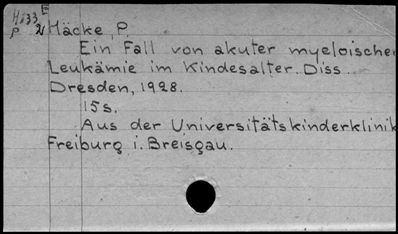 H833 E
P 2 Häcke, P.
Ein Fall von akuter myeloischer
Leukämie im Kindesalter. Diss.
Dresden, 1928.
15s.
Aus der Universitätskinderklinik
Freiburg i. Breisgau.